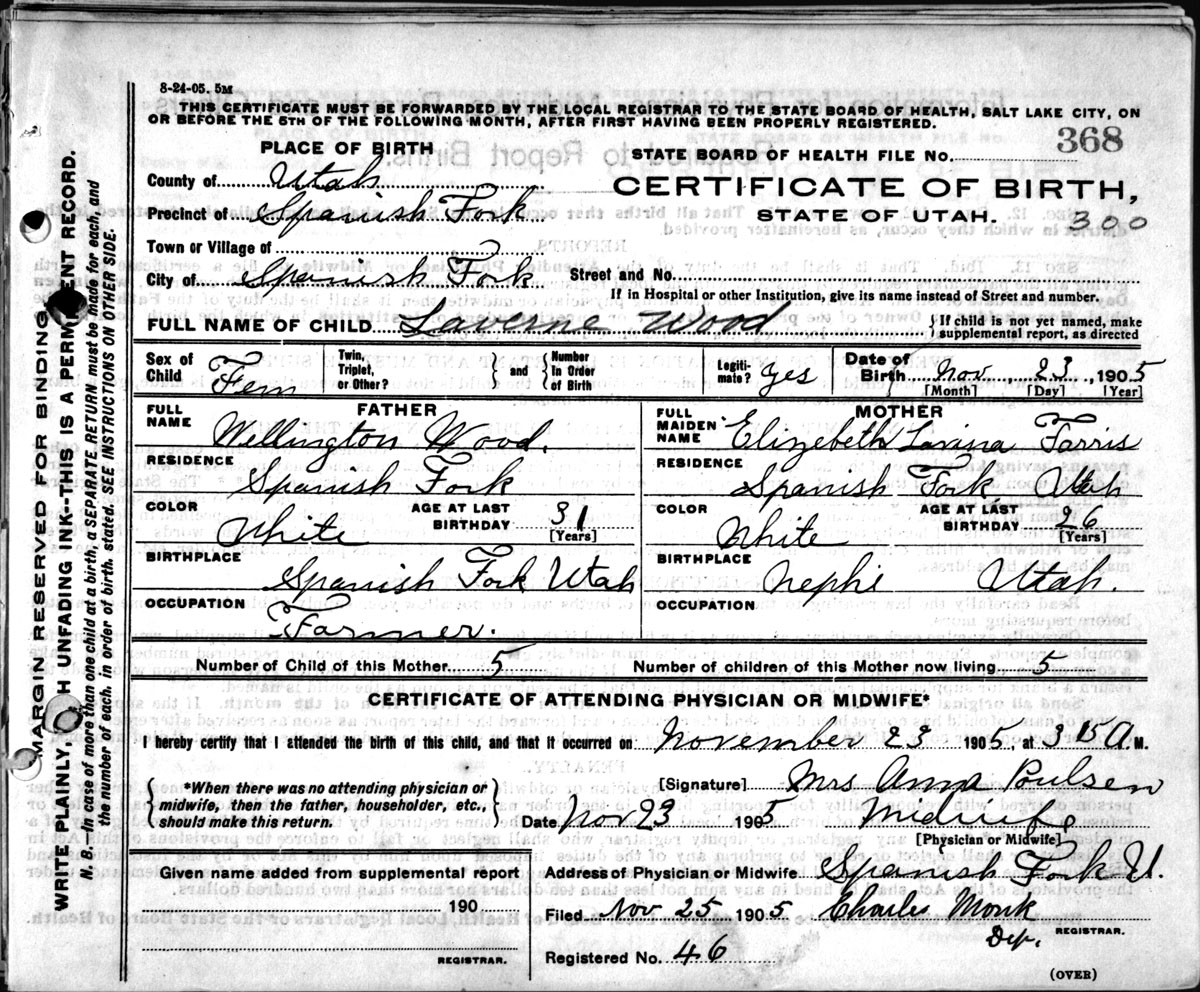 8-24-05. 5M
THIS CERTIFICATE MUST BE FORWARDED BY THE LOCAL REGISTRAR TO THE STATE BOARD OF HEALTH, SALT LAKE CITY, ON
OR BEFORE THE 5TH OF THE FOLLOWING MONTH, AFTER FIRST HAVING BEEN PROPERLY REGISTERED.
PLACE OF BIRTH
STATE BOARD OF HEALTH FILE NO. 368
County of Utah
CERTIFICATE OF BIRTH,
Precinct of Spanish Fork
STATE OF UTAH. 300
Town or Village of
City of Spanish Fork Street and No.
If in Hospital or other Institution, give its name instead of Street and number.
FULL NAME OF CHILD Laverne Wood { If child is not yet named, make supplemental report, as directed
Sex of Child Fem Twin, Triplet, or Other? } and { Number In Order of Birth Legiti-mate? yes Date of Birth Nov 23, 1905
[Month] [Day] [Year]
FATHER
FULL NAME Wellington Wood.
RESIDENCE Spanish Fork
COLOR White AGE AT LAST BIRTHDAY 31 [Years]
BIRTHPLACE Spanish Fork Utah
OCCUPATION Farmer.
MOTHER
FULL MAIDEN NAME Elizebeth Lavina Farris
RESIDENCE Spanish Fork, Utah
COLOR White AGE AT LAST BIRTHDAY 26 [Years]
BIRTHPLACE Nephi Utah.
OCCUPATION
Number of Child of this Mother 5 Number of children of this Mother now living 5
CERTIFICATE OF ATTENDING PHYSICIAN OR MIDWIFE*
I hereby certify that I attended the birth of this child, and that it occurred on November 23 1905, at 3 15 A M.
{ *When there was no attending physician or midwife, then the father, householder, etc., should make this return. }
[Signature] Mrs. Anna Poulsen
Date Nov 23 1905 Midwife
[Physician or Midwife]
Given name added from supplemental report
190
REGISTRAR.
Address of Physician or Midwife Spanish Fork U.
Filed Nov 25 1905 Charles Monk
Dep. REGISTRAR.
Registered No. 46
(OVER)
MARGIN RESERVED FOR BINDING
WRITE PLAINLY, WITH UNFADING INK--THIS IS A PERMANENT RECORD.
N. B.--In case of more than one child at a birth, a SEPARATE RETURN must be made for each, and
the number of each, in order of birth, stated. SEE INSTRUCTIONS ON OTHER SIDE.